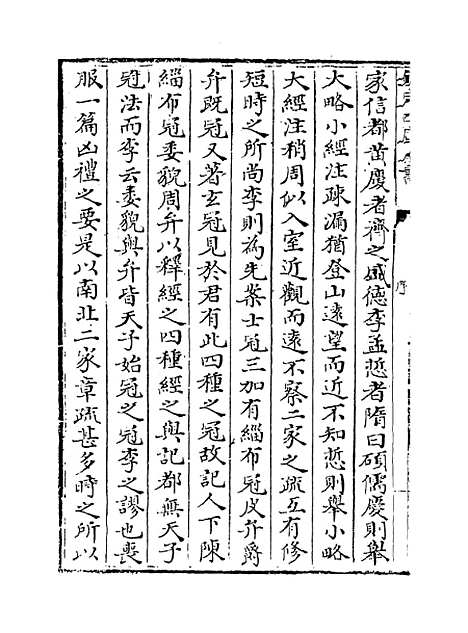 家信都黄慶者齊之盛德李孟悊者隋曰碩儒慶則舉
大略小經注疎漏猶登山遠望而近不知悊則舉小略
大經注稍周似入室近觀而遠不察二家之疏互有修
短時之所尚李則為先案士冠三加有緇布冠皮弁爵
弁既冠又著玄冠見於君有此四種之冠故記人下陳
緇布冠委貌周弁以釋經之四種經之與記都無天子
冠法而李云委貌與弁皆天子始冠之冠李之謬也喪
服一篇凶禮之要是以南北二家章疏甚多時之所以
序